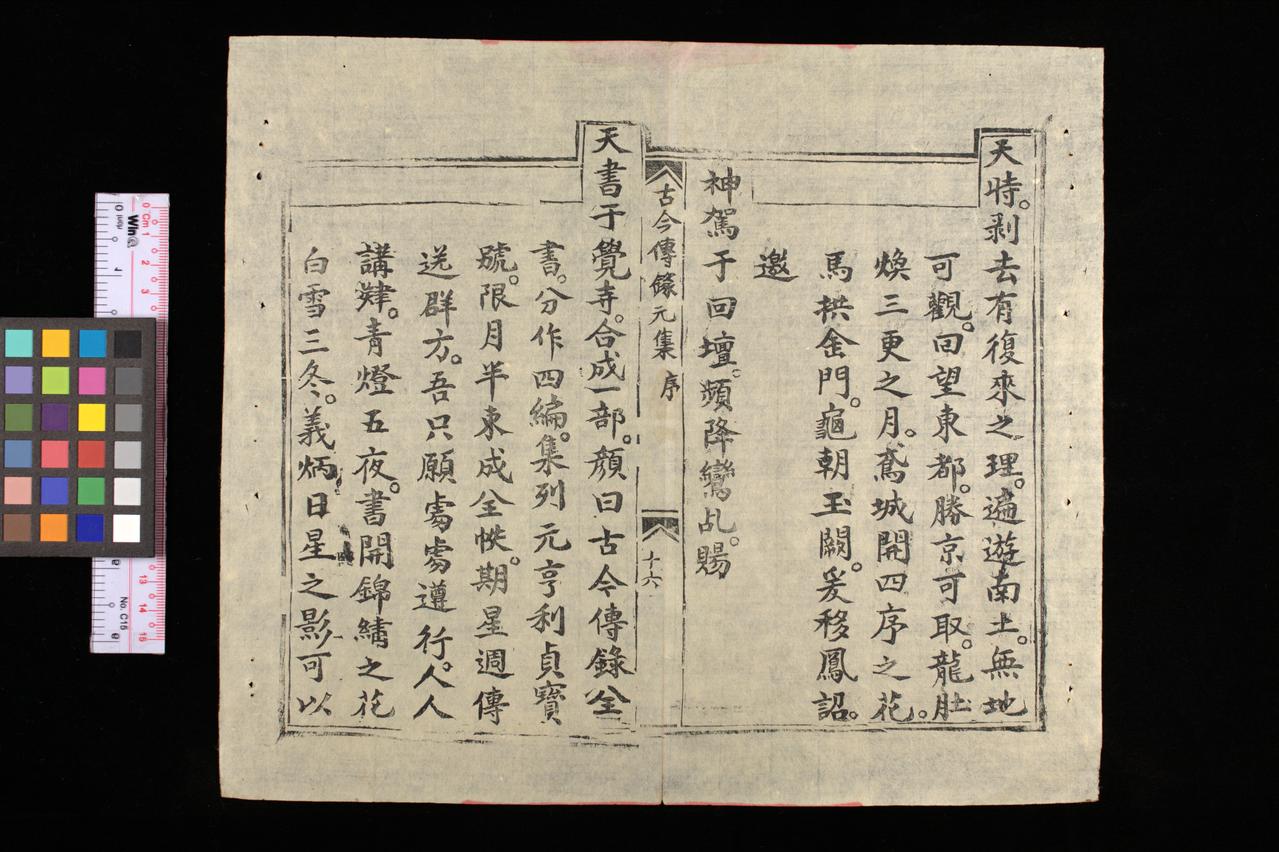 天時。剥去有復來之理。遍遊南土。無地
可觀。回望東都。勝京可取。龍肚
煥三更之月。鳶城開四序之花。
馬拱金門。龜朝玉闕。爰移鳳詔。
邀
神駕于回壇。頻降鸞乩。賜
古今傳錄元集 序 十六
天書于覺寺。合成一部。顏曰古今傳錄全
書。分作四編。集列元亨利貞寶
號。限月半束成全帙。期星週傳
送群方。吾只願䖏䖏遵行。人人
講肄。青燈五夜。書開錦繡之花
白雪三冬。義炳日星之影。可以